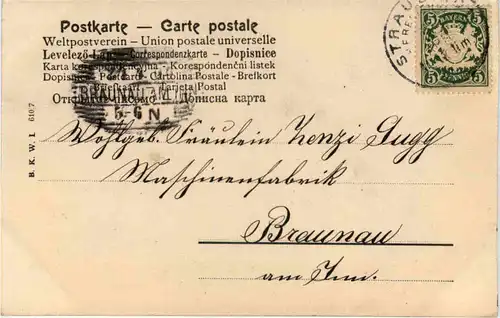 Postkarte — Carte postale
Weltpostverein – Union postale universelle
Levelező-Lap – Correspondenzkarte – Dopisnice
Karta korespondencyjna - Korespondenční listek
Dopisnice Postcard - Cartolina Postale - Brefkort
Briefkaart Tarjeta Postal
Открытое письмо - Дописна карта
BRAUNAU
5-6 N
STRAU
BAYERN
5 5
5 5
B. K. W. I. 610/7
Wohlgeb. Fräulein Zenzi Gugg
Maschinenfabrik
Braunau
am Inn.